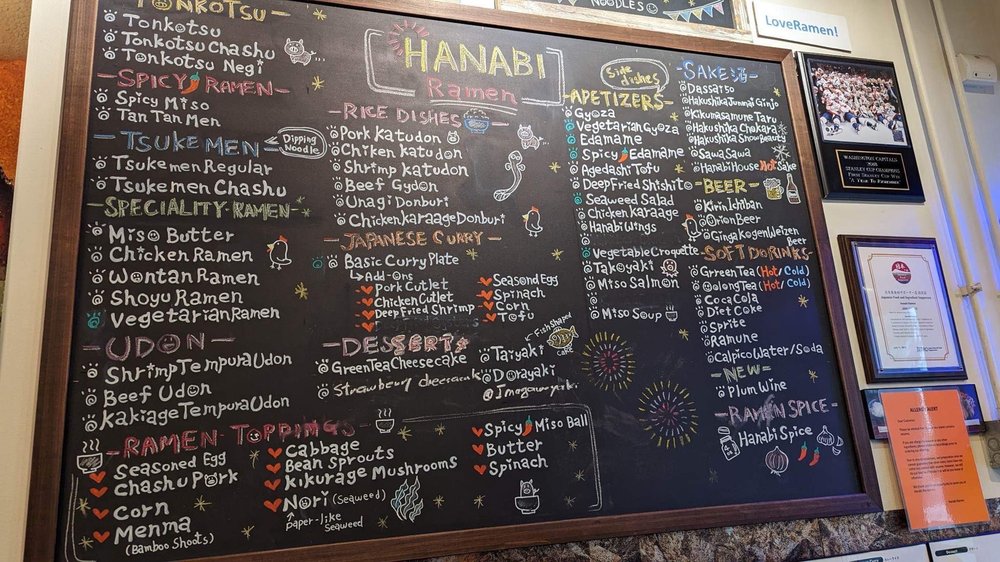 NOODLES
LoveRamen!
HANABI
Ramen
TONKOTSU
Tonkotsu
Tonkotsu Chashu
Tonkotsu Negi
SPICY RAMEN
Spicy Miso
Tan Tan Men
TSUKEMEN
Dipping Noodle
Tsukemen Regular
Tsukemen Chashu
SPECIALITY-RAMEN-
Miso Butter
Chicken Ramen
Wontan Ramen
Shoyu Ramen
Vegetarian Ramen
-UDON-
Shrimp Tempura Udon
Beef Udon
Kakiage Tempura Udon
-RICE DISHES
Pork Katudon
Chiken katudon
Shrimp katudon
Beef Gydon
Unagi Donburi
Chicken karaage Donburi
-JAPANESE CURRY-
Basic Curry Plate
Add-Ons
Pork Cutlet
Chicken Cutlet
Deep Fried Shrimp
Seasoned Egg
Spinach
Corn
Tofu
-DESSERTS-
Green Tea Cheesecake
Strawberry cheesecake
Fish Shaped cake
Taiyaki
Dorayaki
Imagawayaki
-RAMEN-TOPPINGS-
Seasoned Egg
Chashu Pork
Corn
Menma
(Bamboo Shoots)
Cabbage
Bean Sprouts
kikurage Mushrooms
Nori (Seaweed)
Paper-like Seaweed
Spicy Miso Ball
Butter
Spinach
Side dishes
-APETIZERS-
Gyoza
Vegetarian Gyoza
Edamame
Spicy Edamame
Agedashi Tofu
Deep Fried Shishito
Seaweed Salad
Chicken Karaage
Hanabi Wings
Vegetable Croquette
Takoyaki
Miso Salmon
Miso Soup
-SAKE 酒-
Dassai 50
Hakushika Junmai Ginjo
Kikumasamune Taru
Hakushika Chokara
Hakushika Snow Beauty
Sawa Sawa
Hanabi House Hot Sake
-BEER-
Kirin Ichiban
Orion Beer
Ginga Kogen Weizen Beer
-SOFT DRINKS
Green Tea (Hot/Cold)
Oolong Tea (Hot/Cold)
Coca Cola
Diet Coke
Sprite
Ramune
Calpico Water/Soda
-NEW-
Plum Wine
RAMEN SPICE-
Hanabi Spice
WASHINGTON CAPITALS
2018
STANLEY CUP CHAMPIONS
ALLERGY ALERT